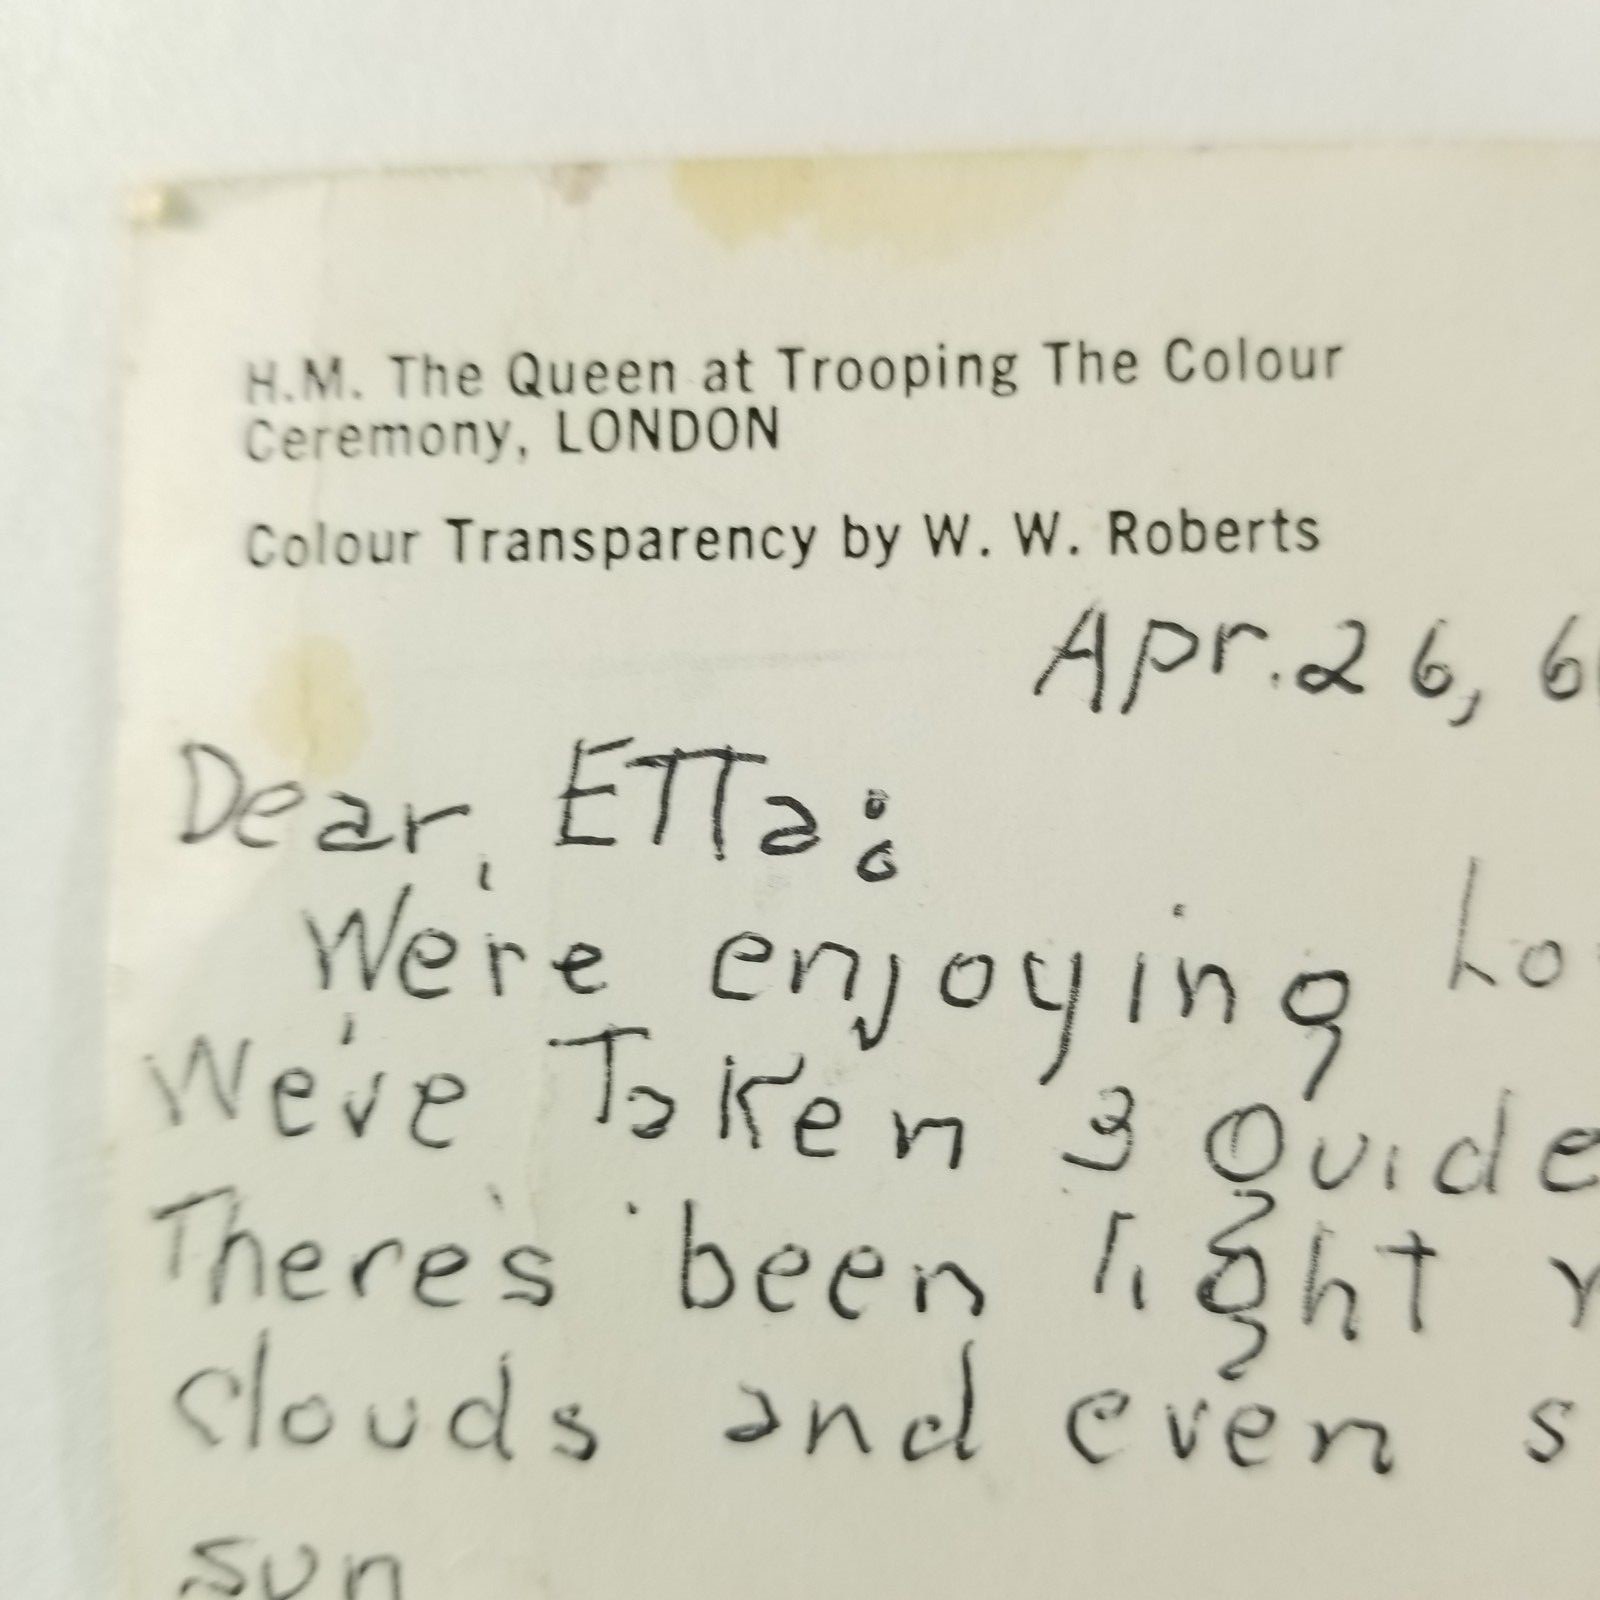 H.M. The Queen at Trooping The Colour
Ceremony, LONDON
Colour Transparency by W. W. Roberts
Apr. 26, 6
Dear, Etta:
We're enjoying Lo
We've Taken 3 Guide
There's been light
clouds and even s
sun